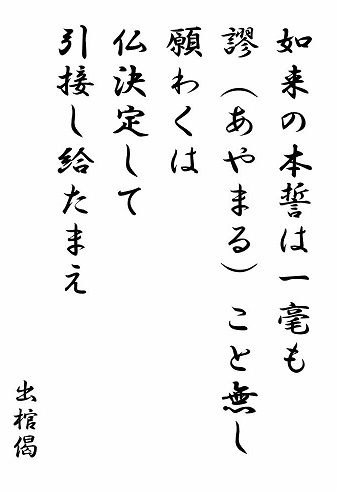 如来の本誓は一毫も
謬（あやまる）こと無し
願わくは
仏決定して
引接し給たまえ
出棺偈